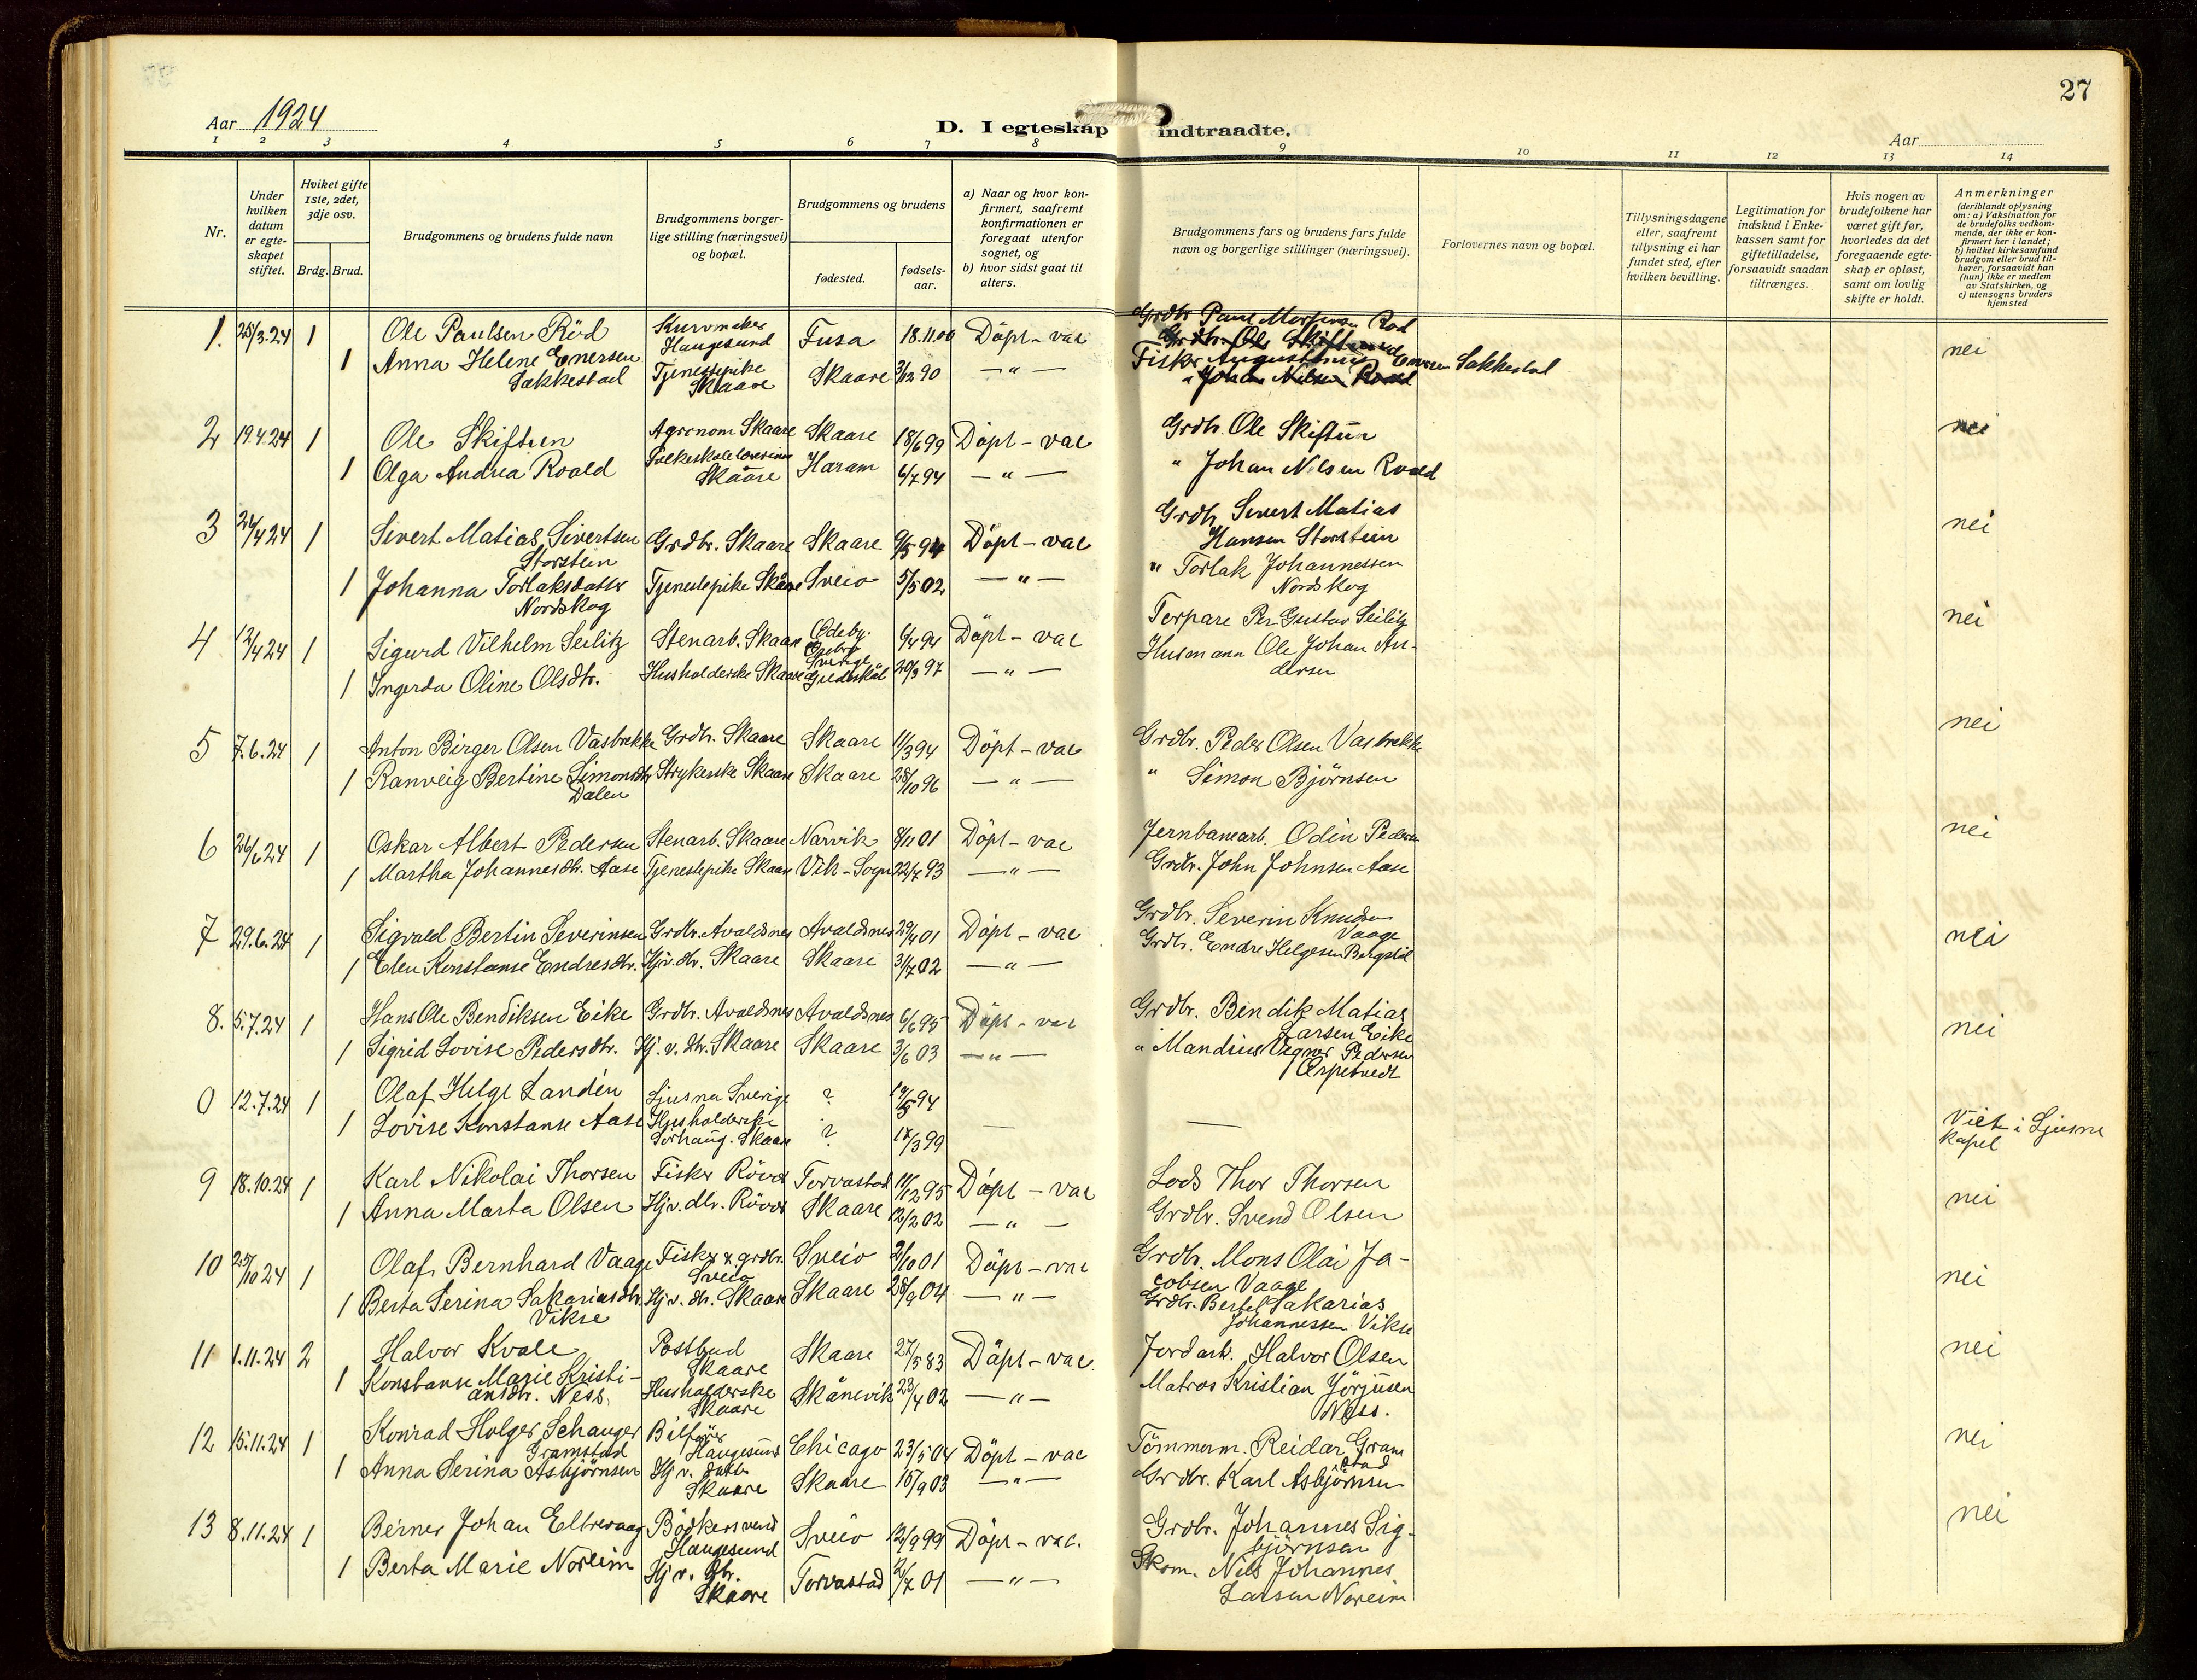 27
Aar 1924
D. I egteskap indtraadte.
Aar
1 2 3 4 5 6 7 8 9 10 11 12 13 14
Nr.
Under hvilken datum er egteskapet stiftet.
Hviket gifte 1ste, 2det, 3dje osv.
Brdg. Brud.
Brudgommens og brudens fulde navn
Brudgommens borgerlige stilling (næringsvei) og bopæl.
Brudgommens og brudens
fødested.
fødselsaar.
a) Naar og hvor konfirmert, saafremt konfirmationen er foregaat utenfor sognet, og
b) hvor sidst gaat til alters.
Brudgommens fars og brudens fars fulde navn og borgerlige stillinger (næringsvei).
Forlovernes navn og bopæl.
Tillysningsdagene eller, saafremt tillysning ei har fundet sted, efter hvilken bevilling.
Legitimation for indskud i Enkekassen samt for giftetilladelse, forsaavidt saadan tiltrænges.
Hvis nogen av brudefolkene har været gift før, hvorledes da det foregaaende egteskap er opløst, samt om lovlig skifte er holdt.
Anmerkninger
(deriblandt oplysning om: a) Vaksination for de brudefolks vedkommende, der ikke er konfirmert her i landet; b) hvilket kirkesamfund brudgom eller brud tilhører, forsaavidt han (hun) ikke er medlem av Statskirken, og c) utensogns bruders hjemsted
1. 25/3.24 1 Ole Paulsen Röd Kurvmaker Haugesund Fusa 18.11.00 Döpt – vac Grdbr Paul Mortensen Röd nei
Grdbr. Ole Skiftun
1 Anna Helene Enersen Sakkestad Tjenestepike Skaare Skaare 3/12 90 — " — Fisker Augustinus Enersen Sakkestad
" Johan Nilsen Roald
2 19.4.24 1 Ole Skiftun Agronom Skaare Skaare 18/6 99 Döpt – vac Grdb. Ole Skiftun nei
1 Olga Andrea Roald Folkeskolelærerinne Skaare Haram 6/7 94 — " — " Johan Nilsen Roald
3 24/4 24 1 Sivert Matias Sivertsen Storstein Grdbr. Skaare Skaare 9/5 94 Döpt – vac Grdb. Sivert Matias Hansen Storstein nei
1 Johanna Torlaksdatter Nordskog Tjenestepike Skaare Sveio 5/5 02 — " — " Torlak Johannessen Nordskog
4 12/4 24 1 Sigurd Vilhelm Seilitz Stenarb. Skaare Ödeby. Örebro Sverige 6/4 94 Döpt – vac Torpare Per Gustav Seilitz nei
1 Ingerda Oline Olsdtr. Husholderske Skaare Gildeskål 20/3 97 — " — Husmann Ole Johan Andersen
5 7.6.24 1 Anton Birger Olsen Vasbrekke Grdbr. Skaare Skaare 11/3 94 Döpt – vac Grdbr. Peder Olsen Vasbrekke nei
1 Ranveig Bertine Simonsdtr Dalen Strykerske Skaare Skaare 28/10 96 — " — " Simon Björnsen
6 26/6 24 1 Oskar Albert Pedersen Stenarb. Skaare Narvik 8/11 01 Döpt – vac Jernbanearb. Odin Pedersen nei
1 Martha Johannesdtr. Aase Tjenestepike Skaare Vik – Sogn 22/7 93 — " — Grdbr. John Johnsen Aase
7 29.6.24 1 Sigvald Bertin Severinsen Grdbr. Avaldsnes Avaldsnes 29/4 01 Döpt – vac Grdbr. Severin Knudsen Vaage nei
1 Elen Konstanse Endresdtr. Hjv. dtr. Skaare Skaare 3/7 02 — " — Grdbr. Endre Helgesen Bergslid
8. 5.7.24 1 Hans Ole Bendiksen Eike Grdbr. Avaldsnes Avaldsnes 6/6 95 Döpt – vac Grdbr. Bendik Matias Larsen Eike nei
1 Sigrid Lovise Pedersdtr. Hj. v. dtr. Skaare Skaare 3/6 03 — " — " Mandius Vegner Pedersen Arpetvedt
0 12.7.24 1 Olaf Helge Landén Ljusna Sverige ? 14/5 94 — — Viet i Ljusne kapel
1 Lovise Konstanse Aase Husholderske Sörhaug. Skaare ? 17/3 99
9 18.10.24 1 Karl Nikolai Thorsen Fisker Rövær Torvastad 11/12 95 Döpt – vac Lods Thor Thorsen nei
1 Anna Marta Olsen Hjv. dtr. Rövær Skaare 12/2 02 — " — Grdbr. Svend Olsen
10 25/10 24 1 Olaf Bernhard Vaage Fisker & grdbr. Sveio Sveio 2/10 01 Döpt – vac Grdbr. Mons Olai Jacobsen Vaage nei
1 Berta Serina Sakariasdtr. Vikse Hj. v. dtr. Skaare Skaare 28/9 04 — " — Grdbr. Bertel Sakarias Johannessen Vikse
11 1.11.24 2 Halvor Kvale Postbud Skaare Skaare 27/5 83 Döpt – vac. Jordarb. Halvor Olsen nei
1 Konstanse Marie Kristiansdtr. Ness. Husholderske Skaare Skånevik 23/4 02 — " — Matros Kristian Jörgensen Ness.
12 15.11.24 1 Konrad Holger Schanger Gramstad Bilfører Haugesund Chicago 23/5 04 Döpt – vac Tömmerm. Reidar Gramstad nei
1 Anna Serina Asbjörnsen Hj v. datt. Skaare Skaare 15/9 03 — " — Grdbr. Karl Asbjörnsen
13 8.11.24 1 Berner Johan Eltrevaag Bödkersvend Haugesund Sveio 12/9 99 Döpt – vac. Grdbr. Johannes Sigbjörnsen nei
1 Berta Marie Noreim Hj v. dtr. Skaare Torvastad 2/7 01 — " — Skom. Nils Johannes Larsen Noreim